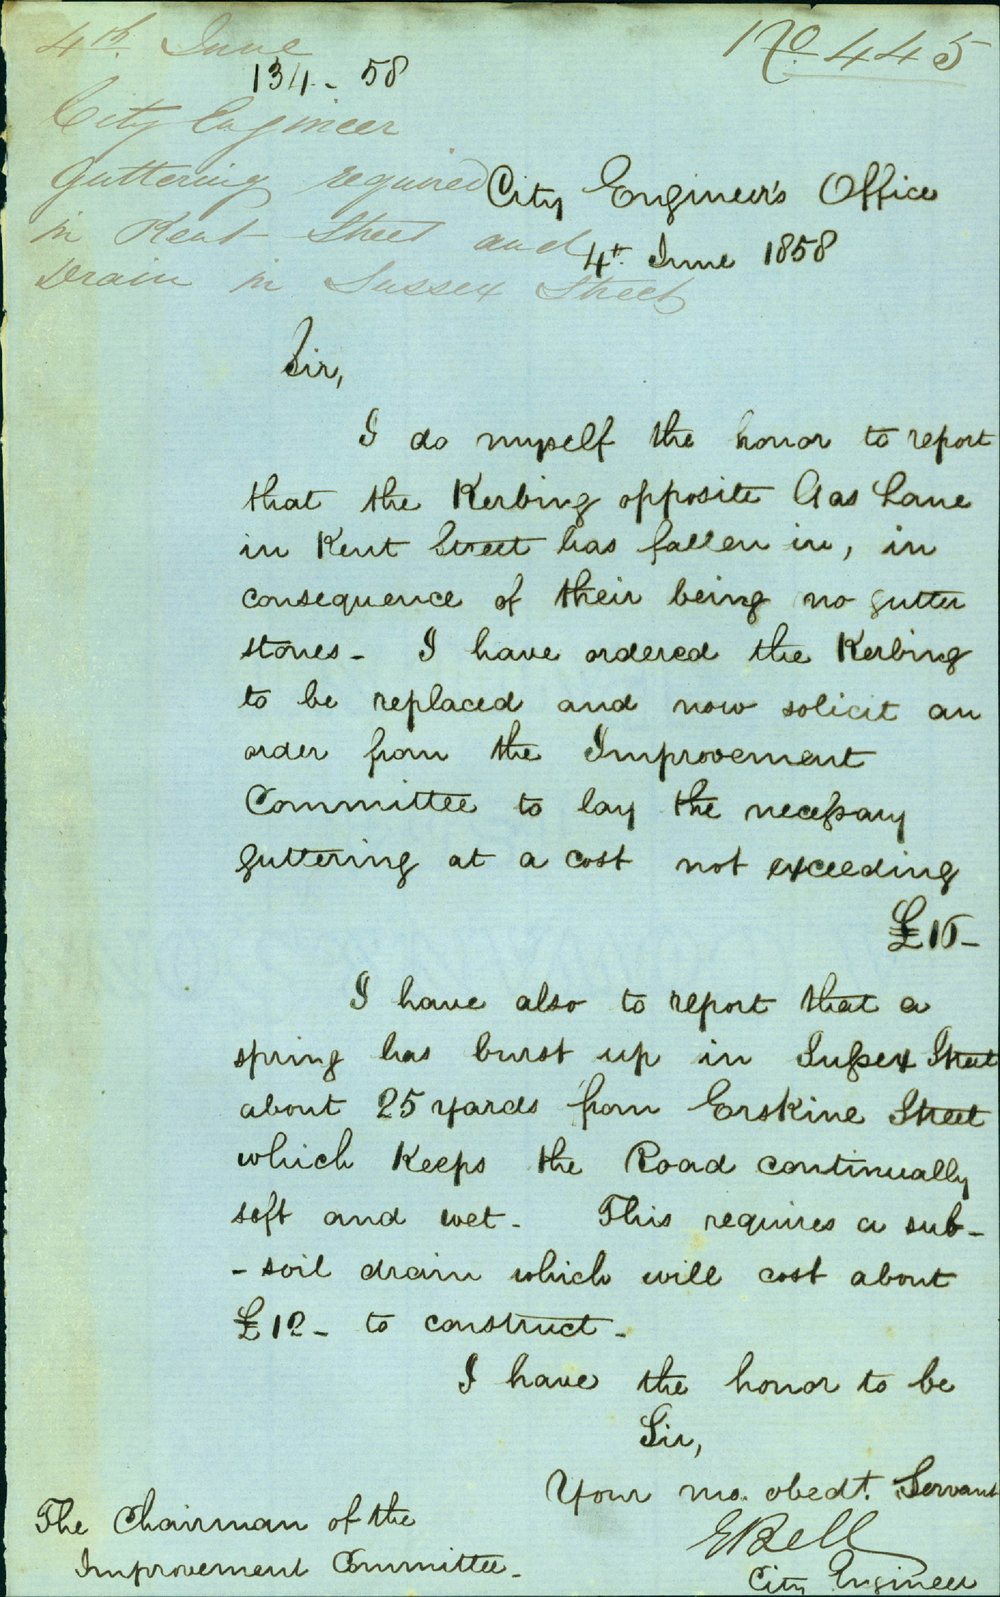 4th. June
No. 445
134 - 58
City Engineer
Guttering required
in Kent Street and
Drain in Sussex Street
City Engineer's Office
4th. June 1858
Sir,
I do myself the honor to report
that the Kerbing opposite Gas Lane
in Kent Street has fallen in, in
consequence of their being no gutter
stones - I have ordered the Kerbing
to be replaced and now solicit an
order from the Improvement
Committee to lay the necessary
guttering at a cost not exceeding
£15 -
I have also to report that a
spring has burst up in Sussex Street
about 25 yards from Erskine Street
which keeps the Road continually
soft and wet - This requires a sub-
-soil drain which will cost about
£12 - to construct -
I have the honor to be
Sir,
Your mo. obedt. Servant
EBell
City Engineer
The Chairman of the
Improvement Committee -